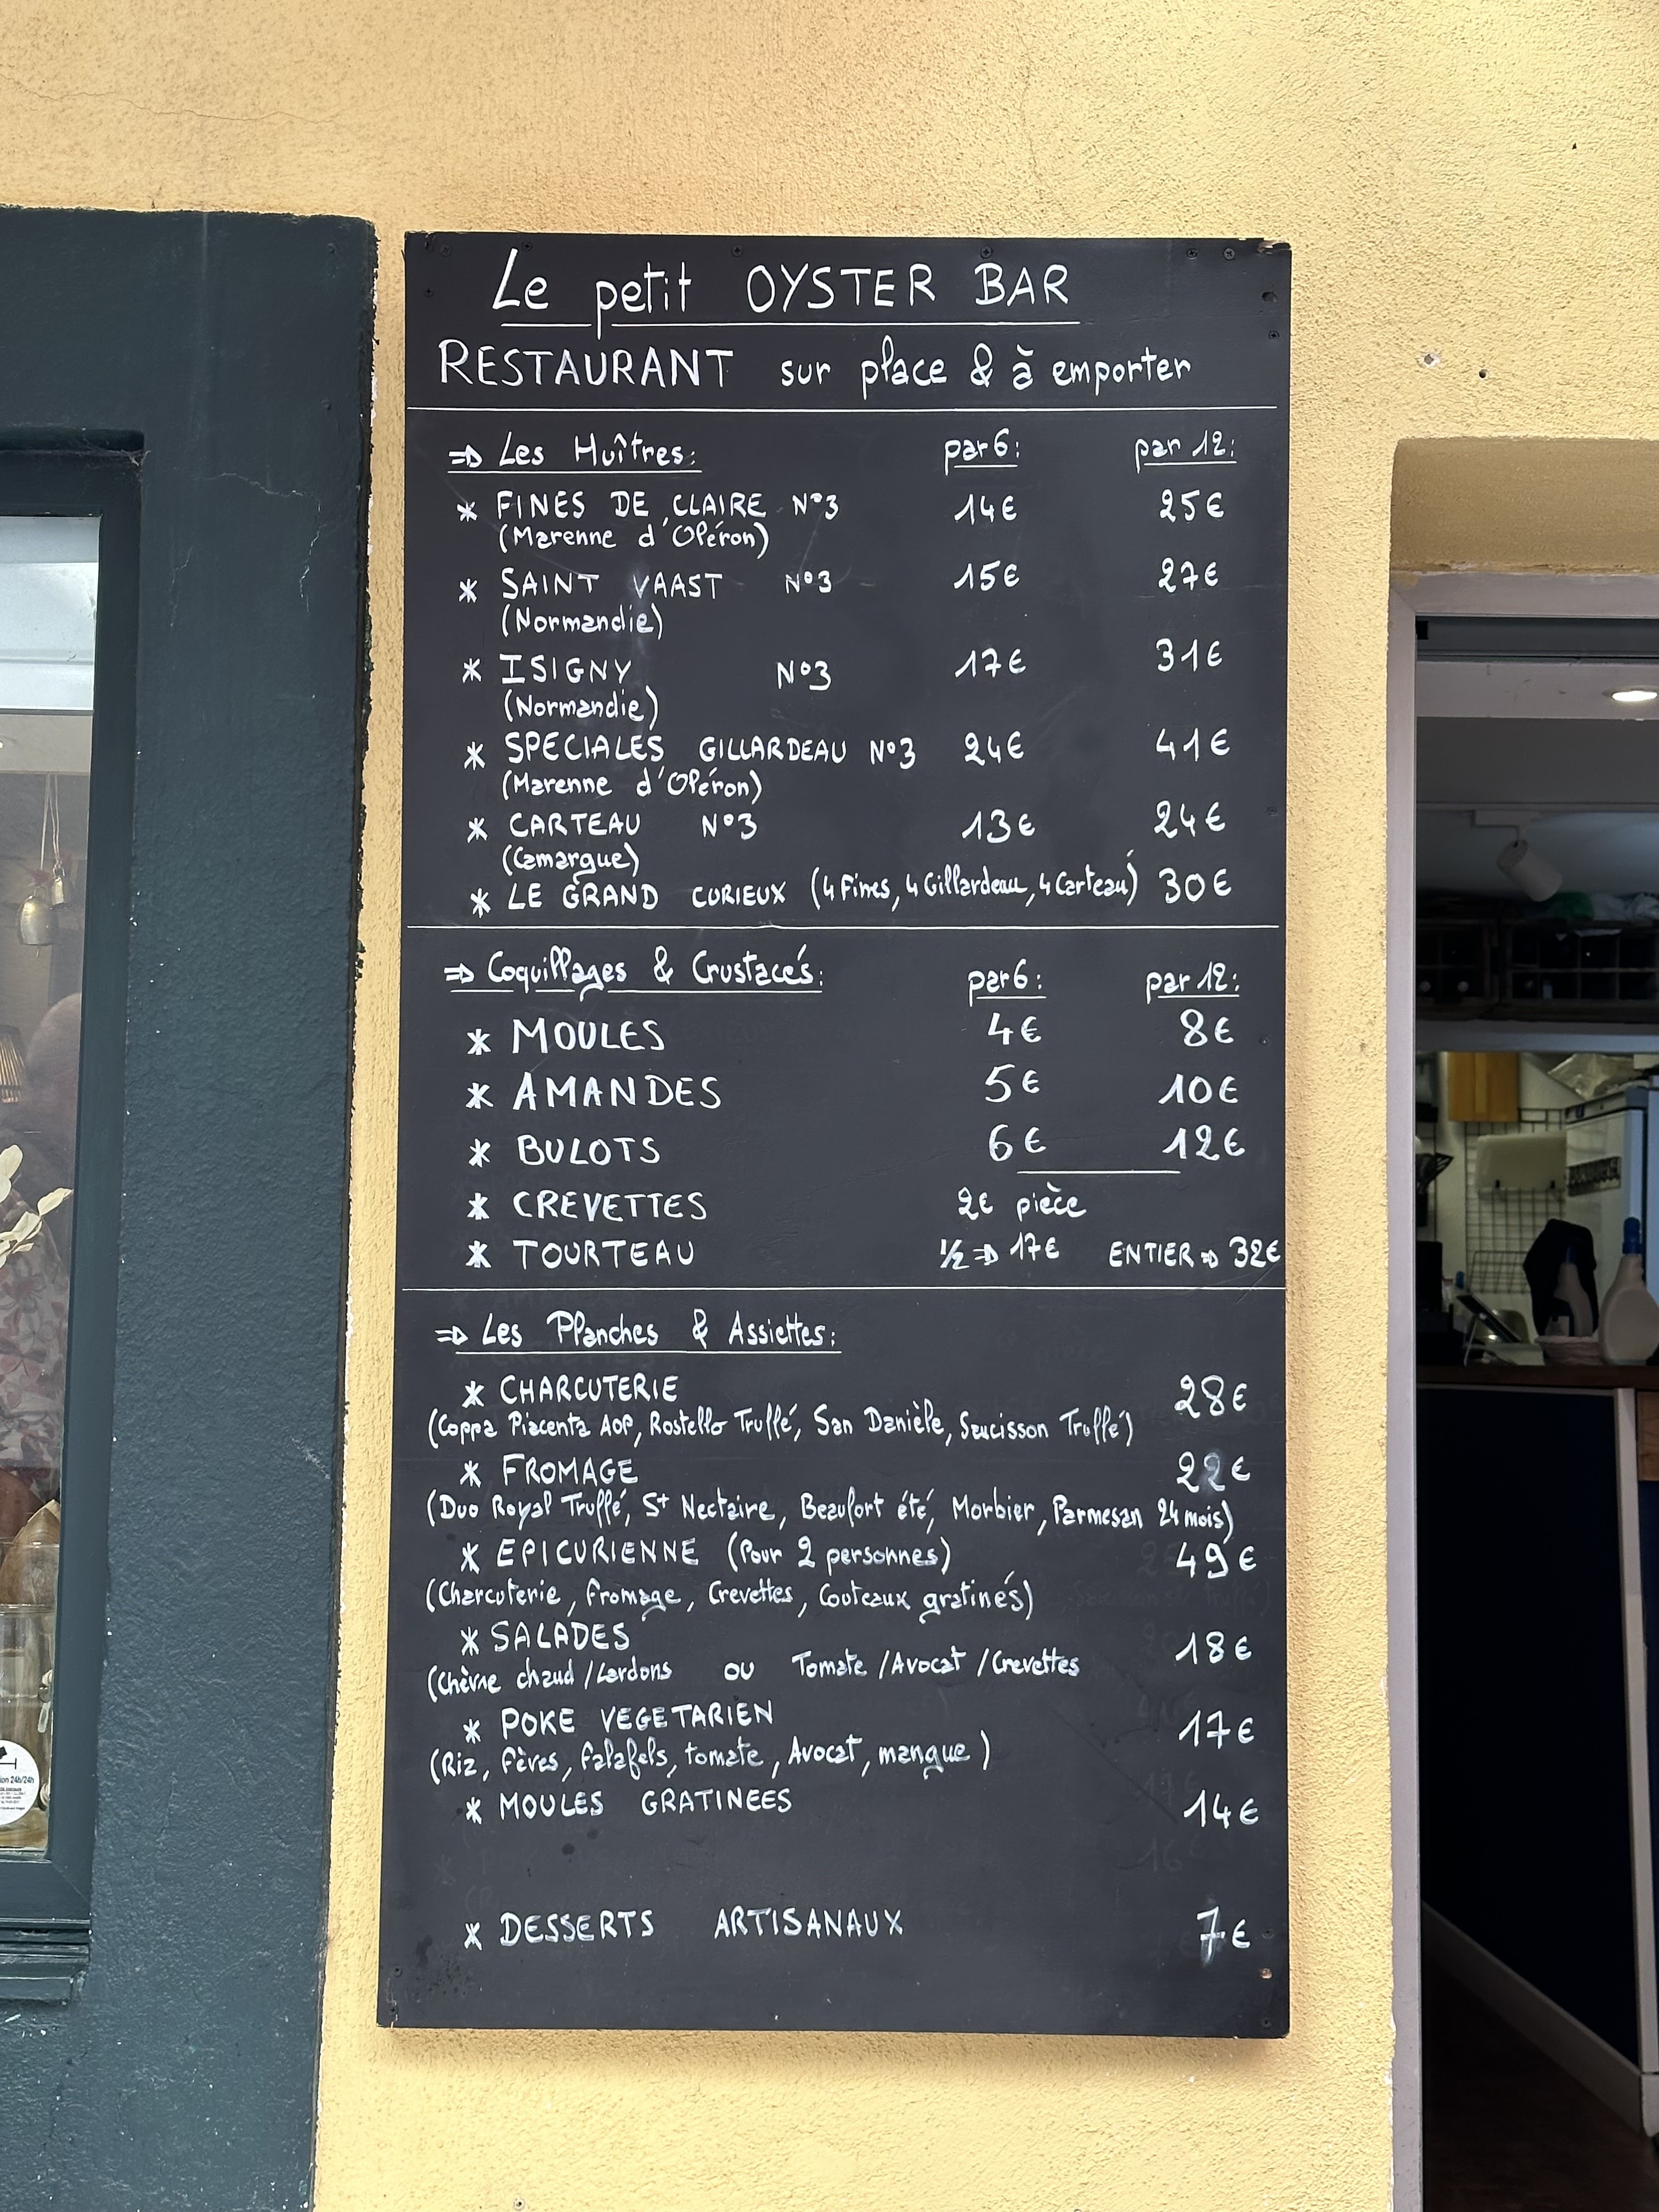 Le petit OYSTER BAR
RESTAURANT sur place & à emporter
⇒ Les Huîtres: par 6: par 12:
* FINES DE CLAIRE N°3 14€ 25€
(Marenne d'Oléron)
* SAINT VAAST N°3 15€ 27€
(Normandie)
* ISIGNY N°3 17€ 31€
(Normandie)
* SPECIALES GILLARDEAU N°3 24€ 41€
(Marenne d'Oléron)
* CARTEAU N°3 13€ 24€
(Camargue)
* LE GRAND CURIEUX (4 Fines, 4 Gillardeau, 4 Carteau) 30€
⇒ Coquillages & Crustacés: par 6: par 12:
* MOULES 4€ 8€
* AMANDES 5€ 10€
* BULOTS 6€ 12€
* CREVETTES 2€ pièce
* TOURTEAU 1/2 ⇒ 17€ ENTIER ⇒ 32€
⇒ Les Planches & Assiettes:
* CHARCUTERIE 28€
(Coppa Piacenta AOP, Rostello Truffé, San Danièle, Saucisson Truffé)
* FROMAGE 22€
(Duo Royal Truffé, St Nectaire, Beaufort été, Morbier, Parmesan 24 mois)
* EPICURIENNE (Pour 2 personnes) 49€
(Charcuterie, fromage, Crevettes, Couteaux gratinés)
* SALADES 18€
(Chèvre chaud / Lardons ou Tomate / Avocat / Crevettes
* POKE VEGETARIEN 17€
(Riz, fèves, falafels, tomate, Avocat, mangue)
* MOULES GRATINEES 14€
* DESSERTS ARTISANAUX 7€
24h/24h